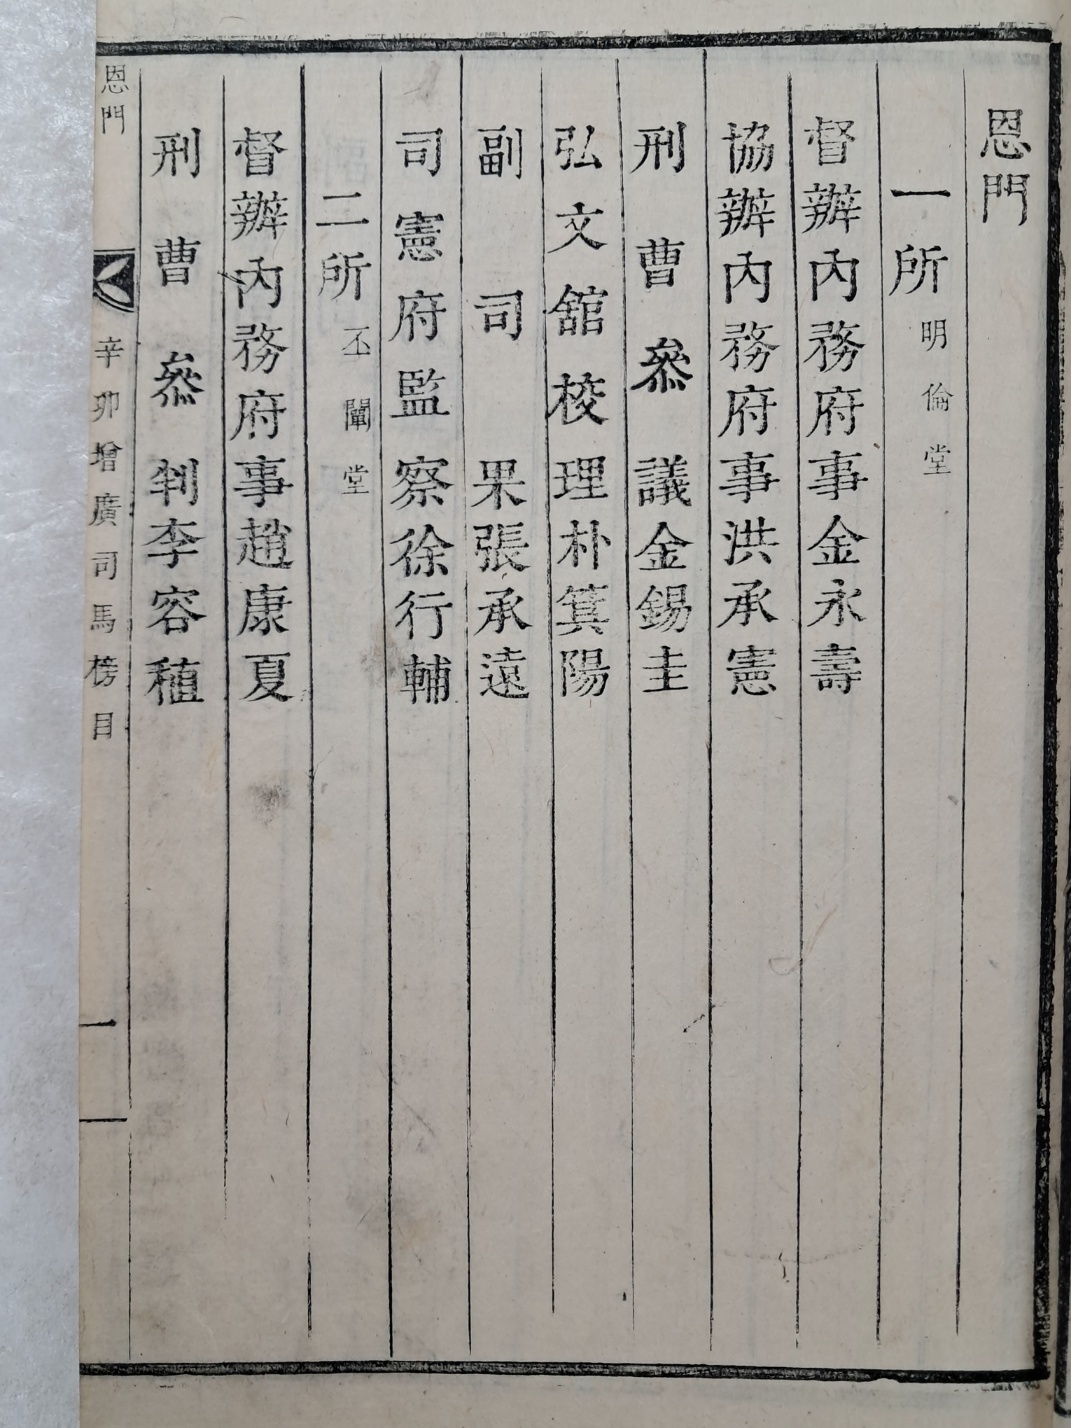 恩門
一所明倫堂
督辦內務府事金永壽
協辦內務府事洪承憲
刑曹叅議金錫圭
弘文舘校理朴箕陽
副司果張承遠
司憲府監察徐行輔
二所丕闡堂
督辦內務府事趙康夏
刑曹叅判李容稙
恩門
辛卯增廣司馬榜目
一